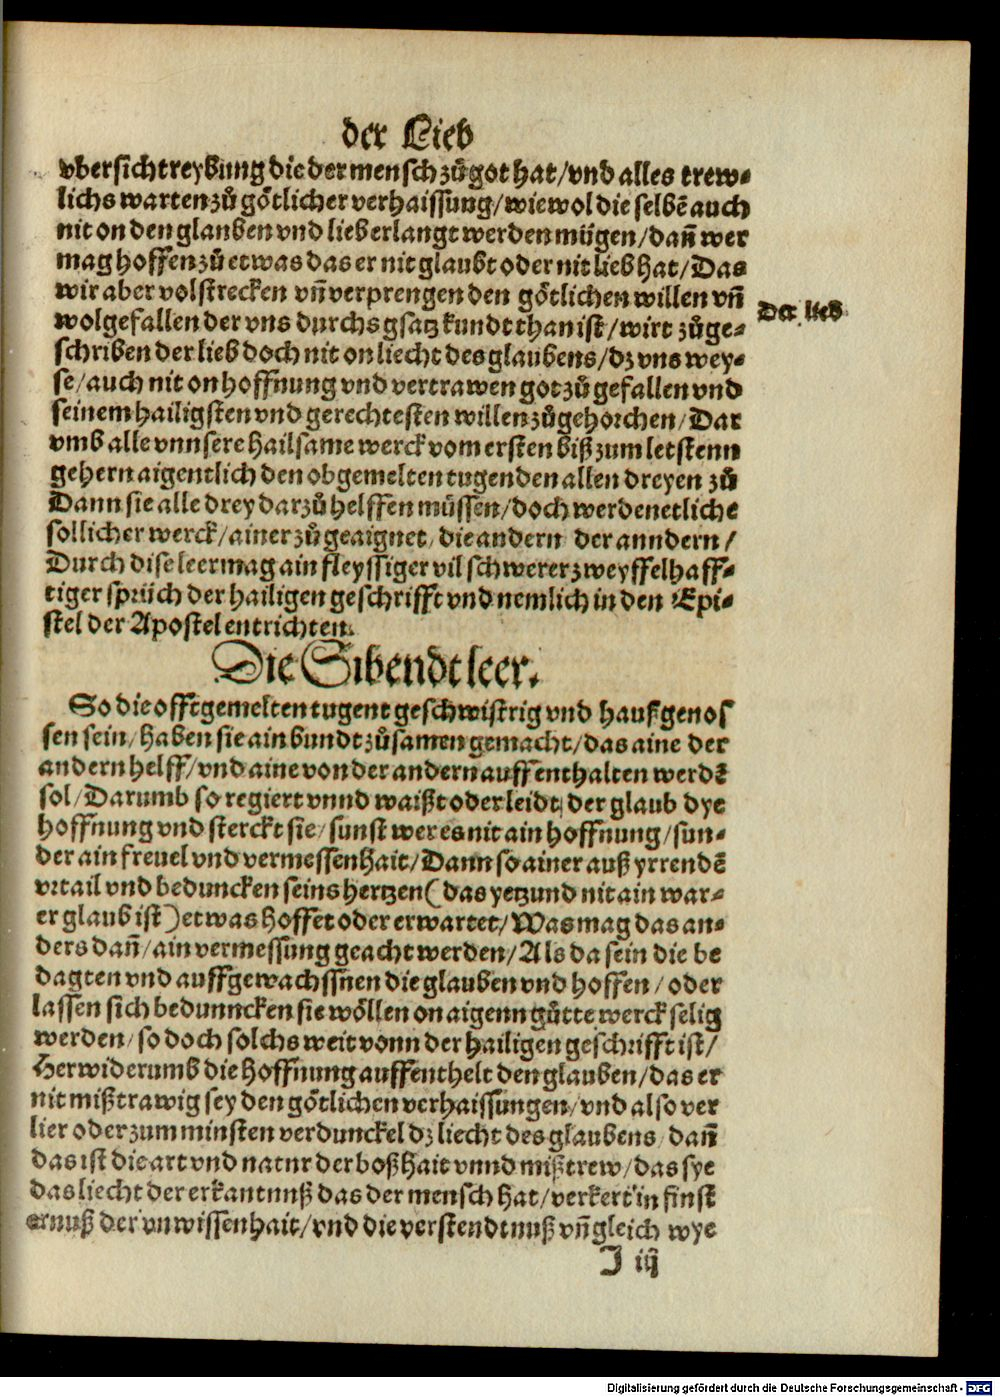 der Lieb
vbersichtreybung die der mensch zů got hat/vnd alles trew-
lichs warten zů götlicher verhaissung/wiewol die selbē auch
nit on den glauben vnd lieb erlangt werden mügen/dañ wer
mag hoffen zů etwas das er nit glaubt oder nit lieb hat/Das
wir aber volstrecken vñ verprengen den götlichen willen vñ
Der lieb
wolgefallen der vns durchs gsatz kundt than ist/wirt zůge-
schriben der lieb doch nit on liecht des glaubens/dz vns wey-
se/auch nit on hoffnung vnd vertrawen got zů gefallen vnd
seinem hailigsten vnd gerechtesten willen zů gehorchen/Dar
vmb alle vnnsere hailsame werck vom ersten biß zum letstenn
gehern aigentlich den obgemelten tugenden allen dreyen zů
Dann sie alle drey darzů helffen müssen/doch werden etliche
sollicher werck/ainer zů geaignet/die andern der anndern/
Durch dise leer mag ain fleyssiger vil schwerer zweyffelhaff-
tiger sprüch der hailigen geschrifft vnd nemlich in den Epi-
stel der Apostel entrichten.
Die Sibendt leer.
So die offtgemelten tugent geschwistrig vnd haußgenos
sen sein/haben sie ain bundt zůsamen gemacht/das aine der
andern helff/vnd aine von der andern auffenthalten werdē
sol/Darumb so regiert vnnd waißt oder leidt der glaub dye
hoffnung vnd sterckt sie/sunst wer es nit ain hoffnung/sun-
der ain freuel vnd vermessenhait/Dann so ainer auß yrrendē
vrtail vnd beduncken seins hertzen(das yetzund nit ain war-
er glaub ist)etwas hoffet oder erwartet/Was mag das an-
ders dañ/ain vermessung geacht werden/Als da sein die be
dagten vnd auffgewachssnen die glauben vnd hoffen/oder
lassen sich bedunncken sie wöllen on aigenn gůtte werck selig
werden/so doch solchs weit vonn der hailigen geschrifft ist/
Herwiderumb die hoffnung auffenthelt den glauben/das er
nit mißtrawig sey den götlichen verhaissungen/vnd also ver
lier oder zum minsten verdunckel dz liecht des glaubens/dañ
das ist die art vnd natur der boßhait vnnd mißtrew/das sye
das liecht der erkantnuß das der mensch hat/verkert in finst
ernuß der vnwissenhait/vnd die verstendtnuß vñ gleich wye
J iij
Digitalisierung gefördert durch die Deutsche Forschungsgemeinschaft - DFG